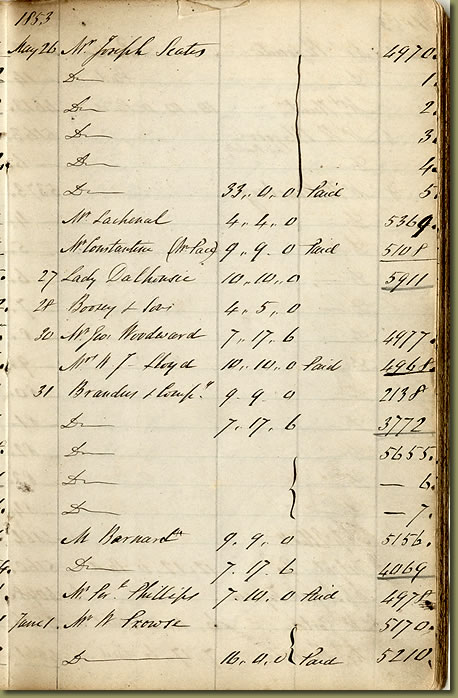 1853
May 26 Mr Joseph Scates 4970.
Do 1.
Do 2.
Do 3.
Do 4.
Do 33,, 0,, 0 Paid 5.
Mr Lachenal 4,, 4,, 0 5369.
Mr Constantine (Mr Pace) 9,, 9,, 0 Paid 5108
27 Lady Dalhousie 10,, 10,, 0 5911
28 Boosey & Sons 4,, 5,, 0
30 Mr Geo. Woodward 7,, 17,, 6 4977.
Mr W J Lloyd 10,, 10,, 0 Paid 4968.
31 Brandus & Compy. 9,, 9,, 0 2138
Do 7,, 17,, 6 3772
Do 5655.
Do — 6.
Do — 7.
M Barnard 9,, 9,, 0 5156.
Do 7,, 17,, 6 4069
Mr Phillips 7,, 10,, 0 Paid 4978
June 1. Mr W Prowse 5170.
Do 16,, 0,, 0 Paid 5210.